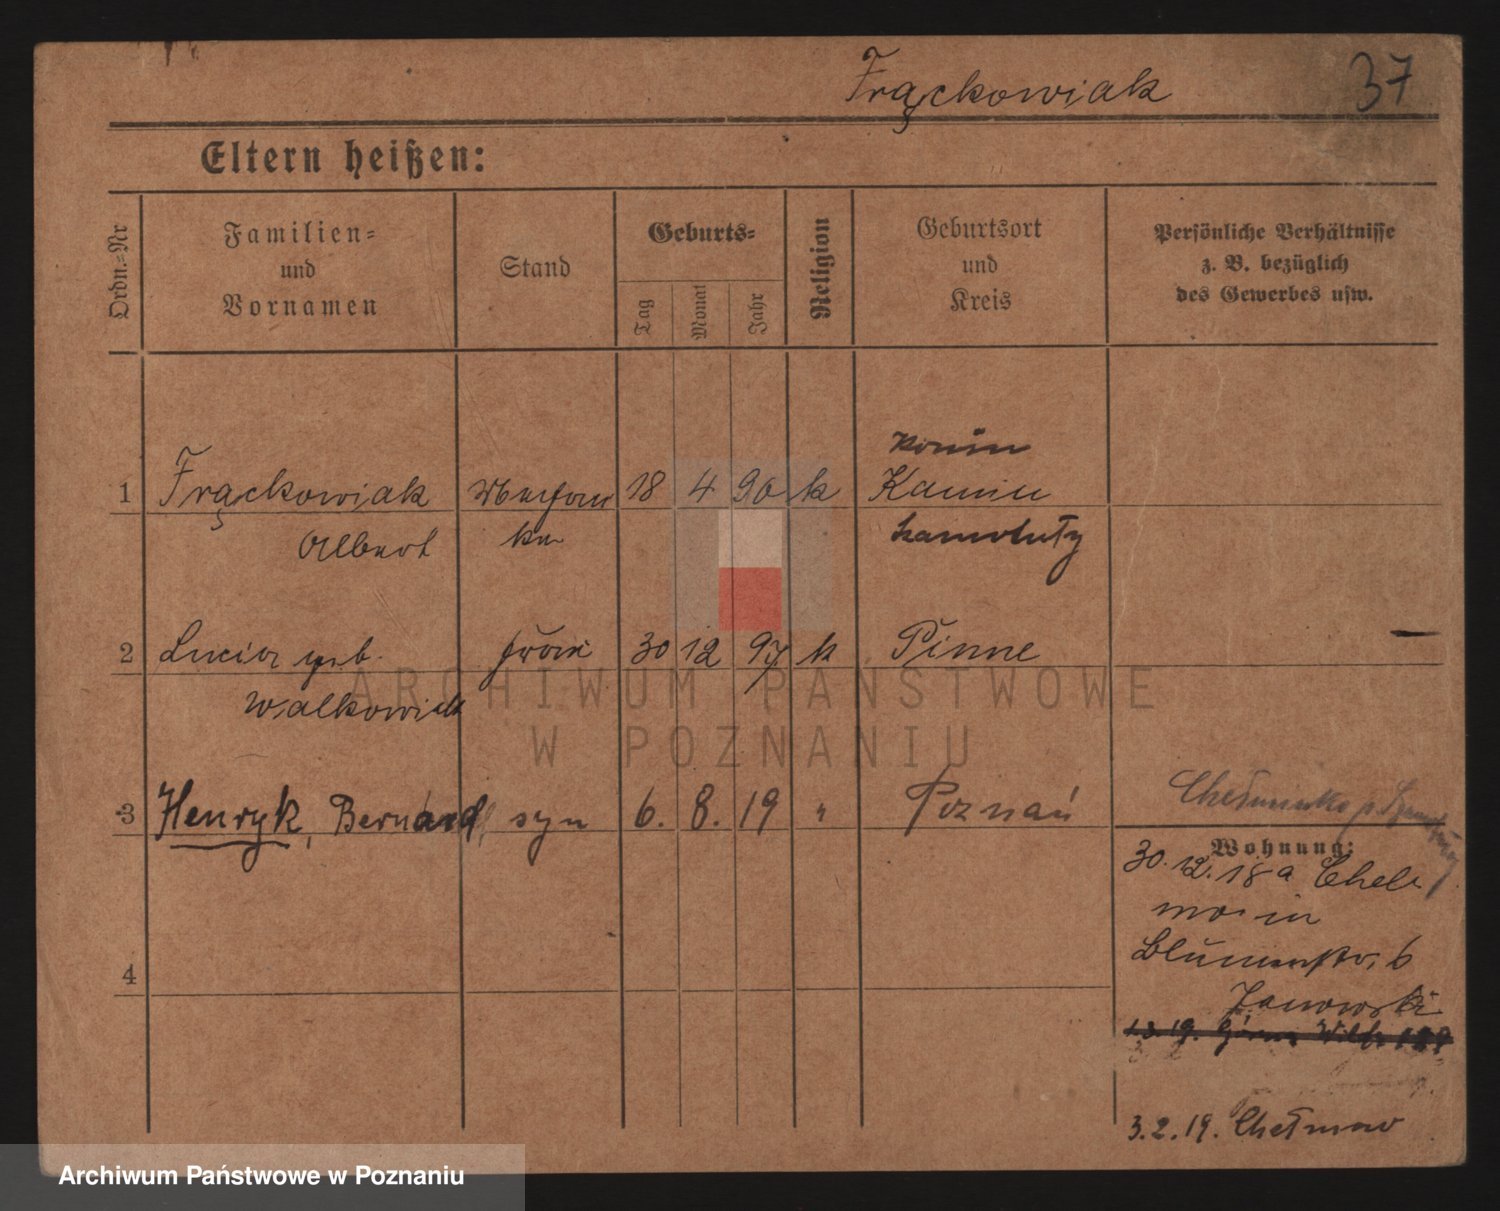 Frąckowiak 37
Eltern heißen:
Ordn.=Nr
Familien=
und
Vornamen
Stand
Geburts=
Tag
Monat
Jahr
Religion
Geburtsort
und
Kreis
Persönliche Verhältnisse
z. B. bezüglich
des Gewerbes usw.
1 Frąckowiak 18 4 90 k
Albert
2 Lucia geb. 30 12 97 k Pinne
Walkowiak
3 Henryk, Bernard syn 6. 8. 19 " Poznań
Wohnung:
30.12.18
Blumenstr. 6
Janowski
4
3.2.19.
ARCHIWUM PAŃSTWOWE
W POZNANIU
Archiwum Państwowe w Poznaniu